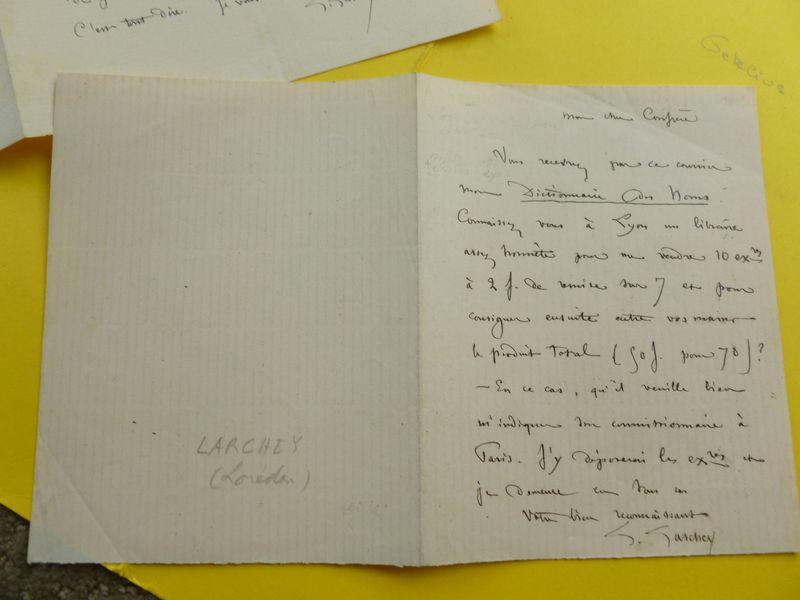 C'est tout dire. Je vous
LARCHEY
(Lorédan)
mon cher Confrère
Vous recevrez par ce courrier
mon Dictionnaire des Noms.
Connaissez vous à Lyon un libraire
assez honnête pour me vendre 10 exres
à 2 f. de remise sur 7 et pour
consigner ensuite entre vos mains
le produit total (50 f. pour 70)?
— En ce cas, qu'il veuille bien
m'indiquer son commissionnaire à
Paris. J'y déposerai les exres et
je demeure
Votre bien reconnaissant
L. Larchey